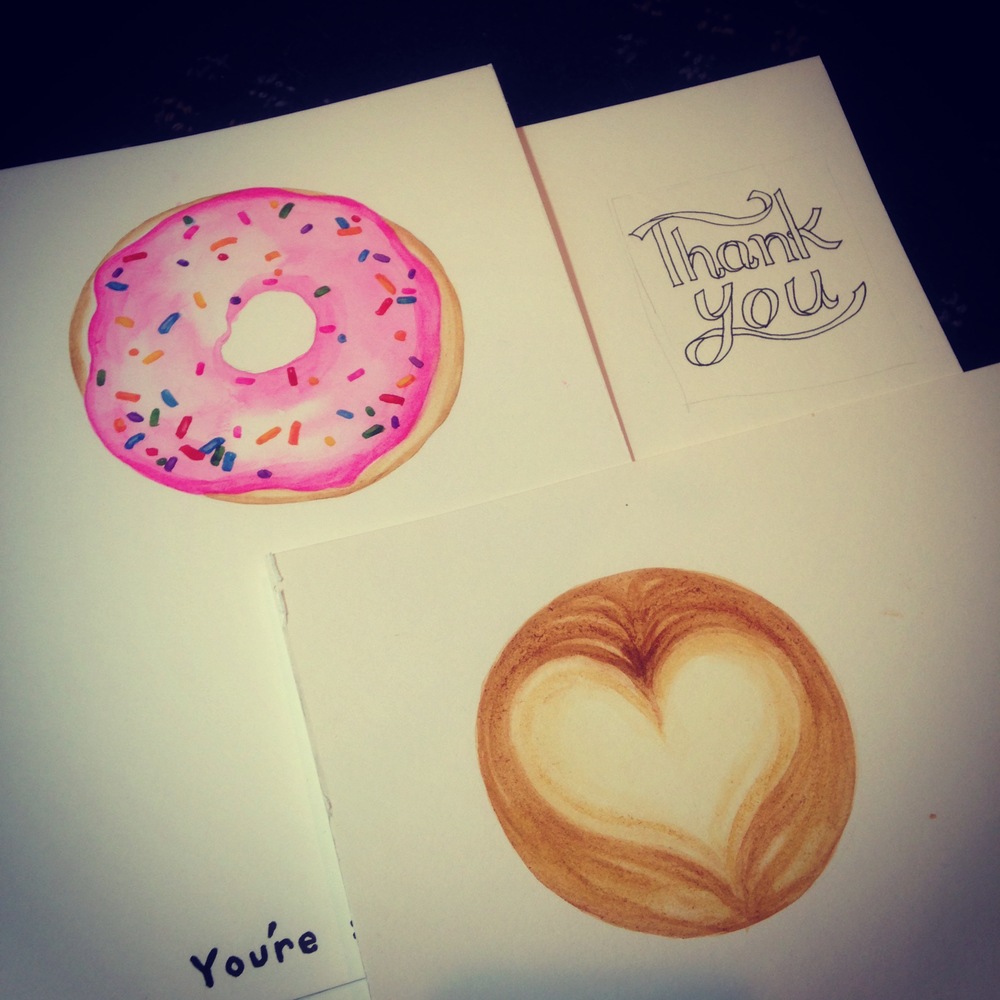 Thank
you
You're